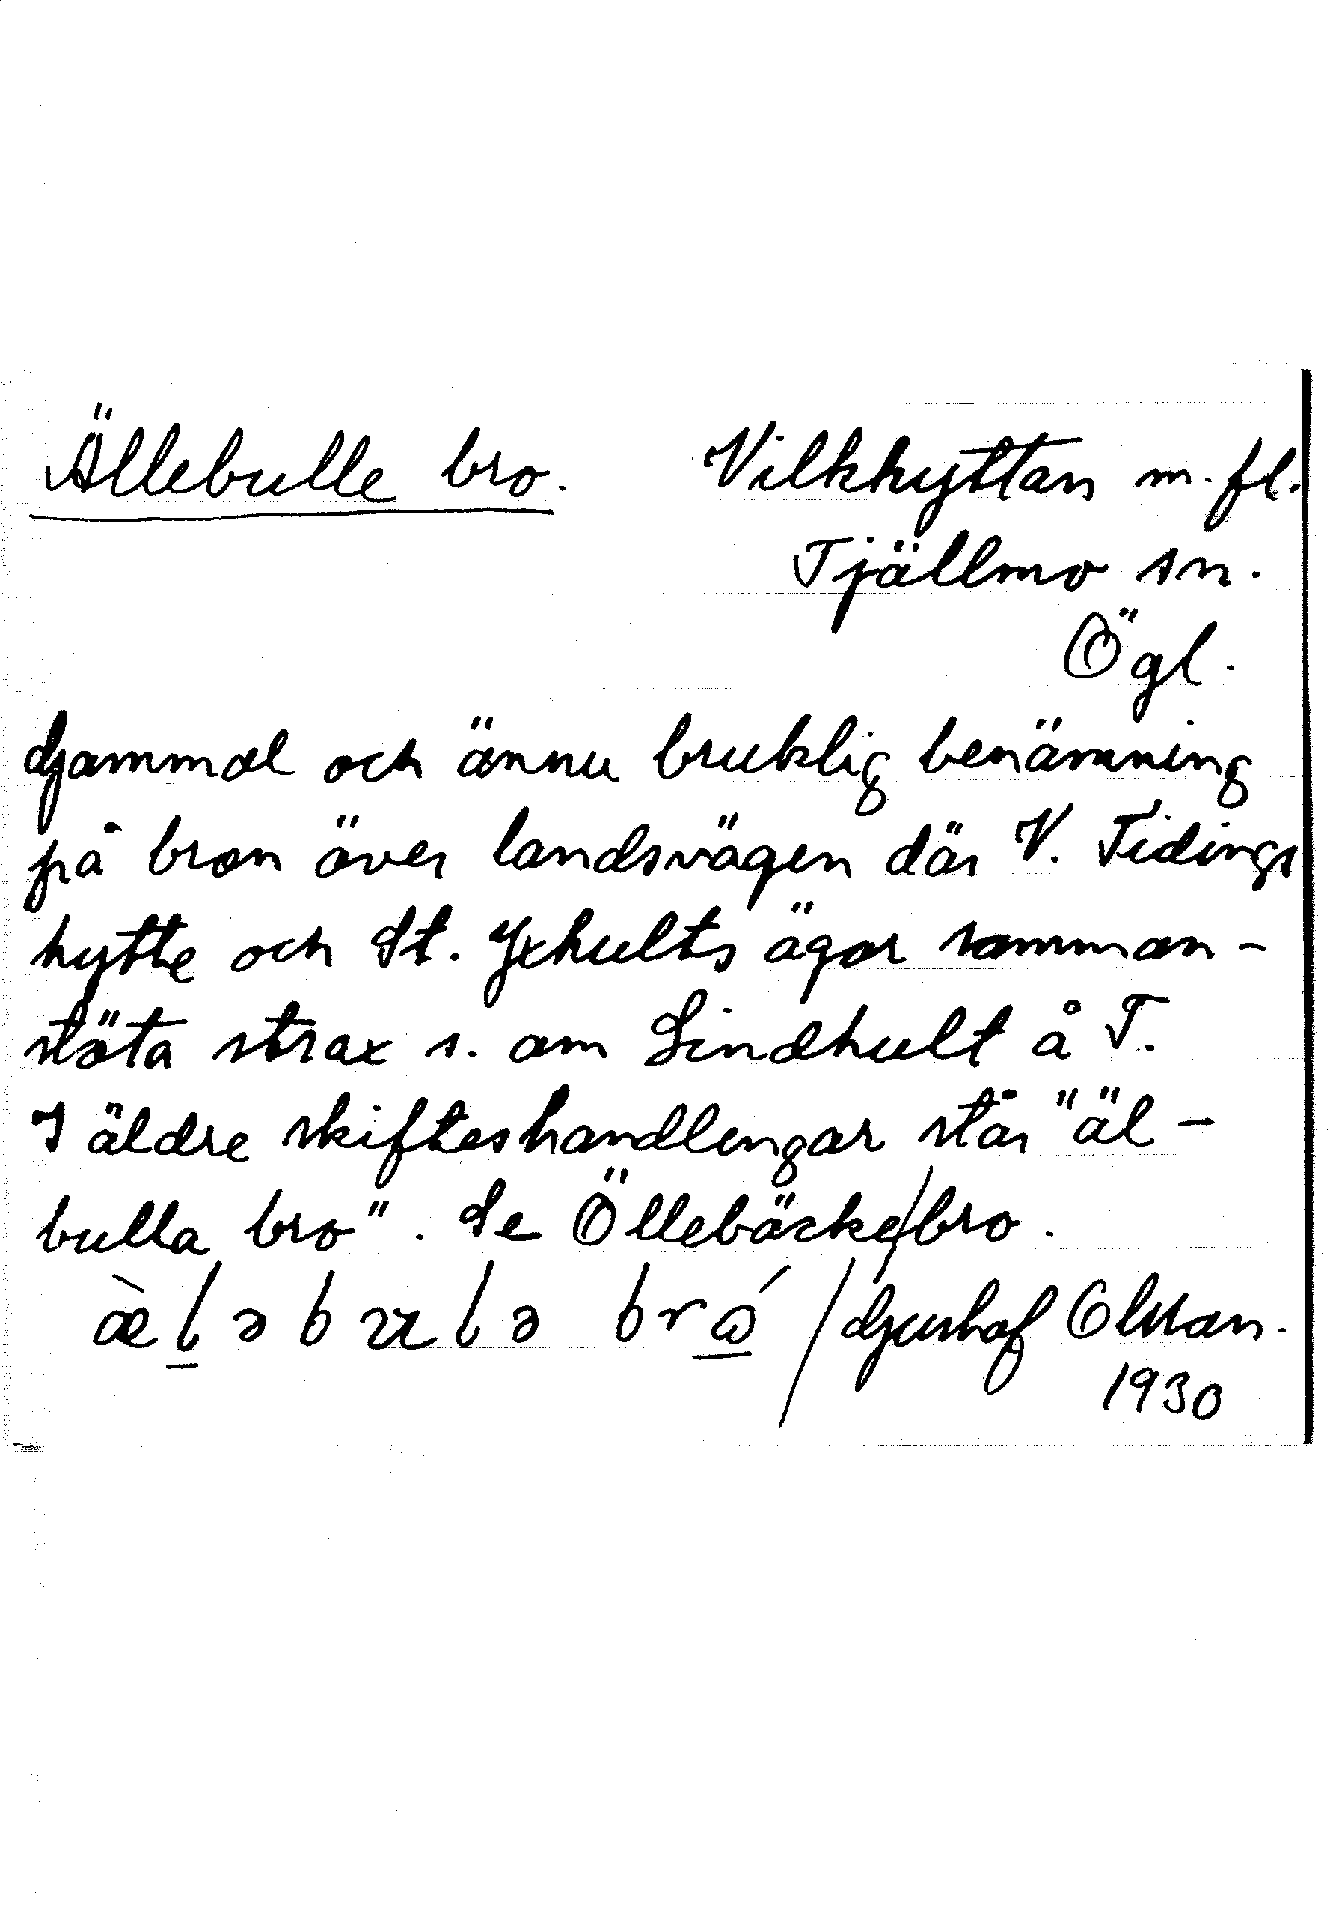 Ällebulle bro. Vilkhyttan m. fl.
Tjällmo sn.
Ögl.
Gammal och ännu bruklig benämning
på bron över landsvägen där V. Tidings
hytte och St. Yxhults ägor samman-
stöta strax s. om Lindhult å T.
I äldre skifteshandlingar står "äl-
bulla bro". Se Öllebäcke/bro.
æ̀l̲əbulə brώ̲ / Gustaf Olsson.
1930